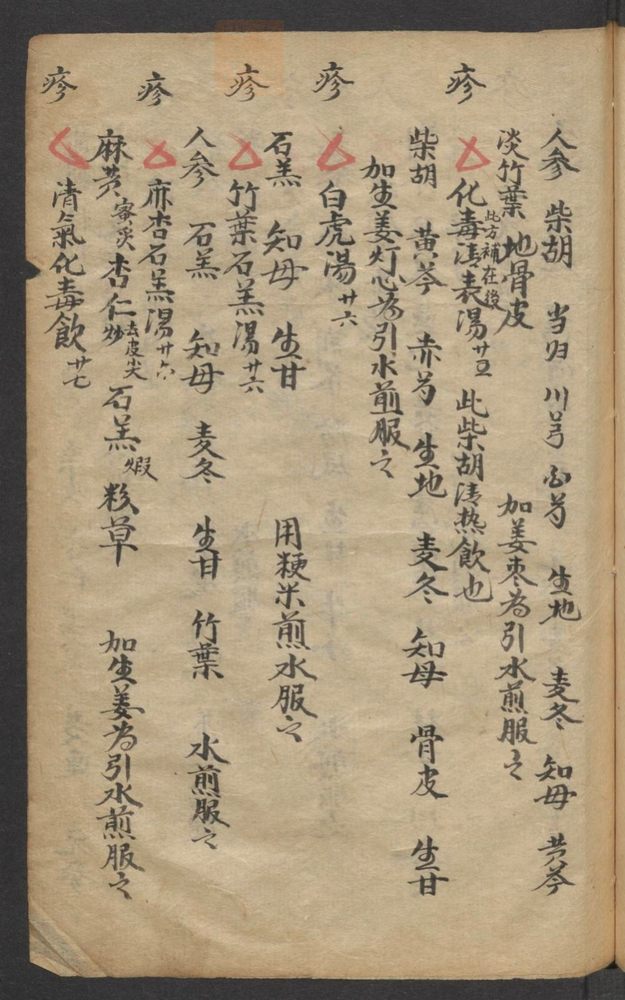 人参 柴胡 当归 川芎 白芍 生地 麦冬 知母 黄芩
淡竹葉 地骨皮 加姜枣為引水煎服之
疹 化毒清表湯廿五 此方補在後 此柴胡清热飲也
柴胡 黄芩 赤芍 生地 麦冬 知母 骨皮 生甘
加生姜灯心為引水煎服之
疹 白虎湯廿六
石羔 知母 生甘 用粳米煎水服之
疹 竹葉石羔湯廿六
人参 石羔 知母 麦冬 生甘 竹葉 水煎服之
疹 麻杏石羔湯廿六
麻黄蜜炙 杏仁去皮尖炒 石羔煅 粉草 加生姜為引水煎服之
疹 清氣化毒飲廿七